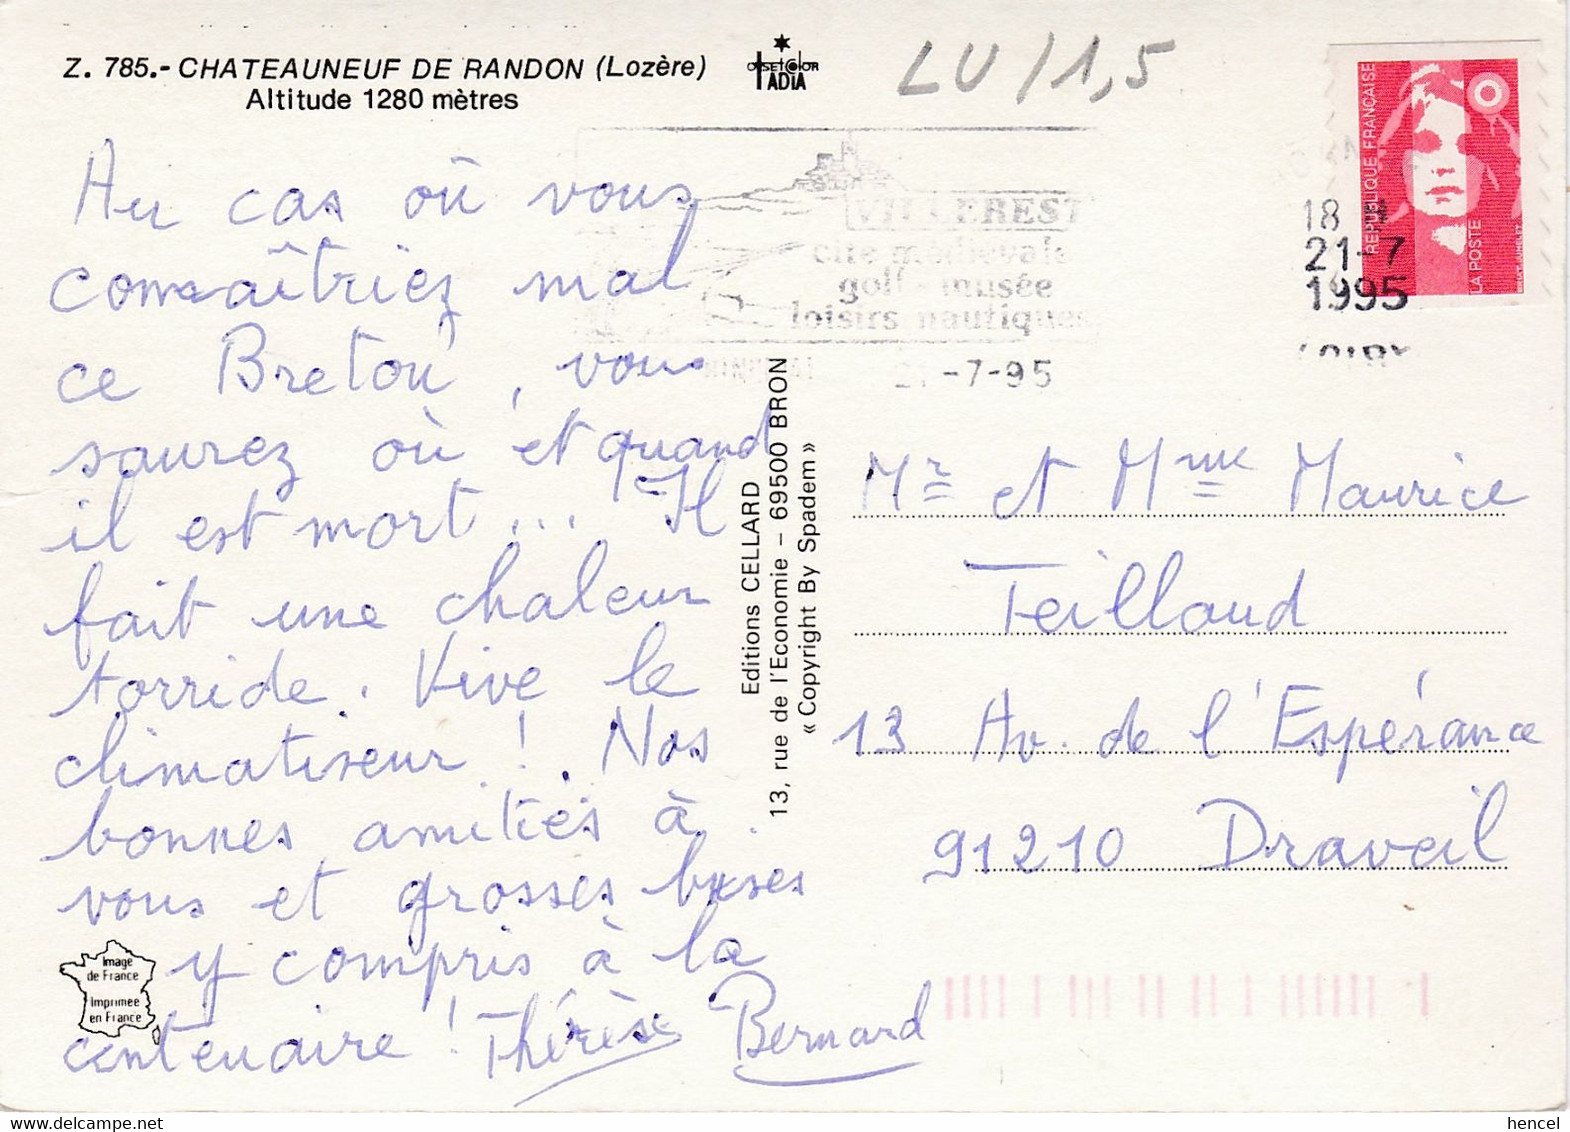 Z. 785.- CHATEAUNEUF DE RANDON (Lozère)
Altitude 1280 mètres
OFFSETCOLOR
TADIA
LU/1,5
Au cas où vous
connaîtriez mal
ce Breton, vous
saurez où et quand
il est mort... Il
fait une chaleur
torride. Vive le
climatiseur !. Nos
bonnes amitiés à
vous et grosses bises
y compris à la
centenaire ! Thérèse Bernard
Image
de France
Imprimée
en France
Editions CELLARD
13, rue de l'Economie - 69500 BRON
« Copyright By Spadem »
VILLEREST
cité médiévale
golf - musée
loisirs nautiques
21-7-95
REPUBLIQUE FRANÇAISE
LA POSTE
18 H
21-7
1995
Mr et Mme Maurice
Teillaud
13 Av. de l'Espérance
91210 Draveil
delcampe.net
hencel